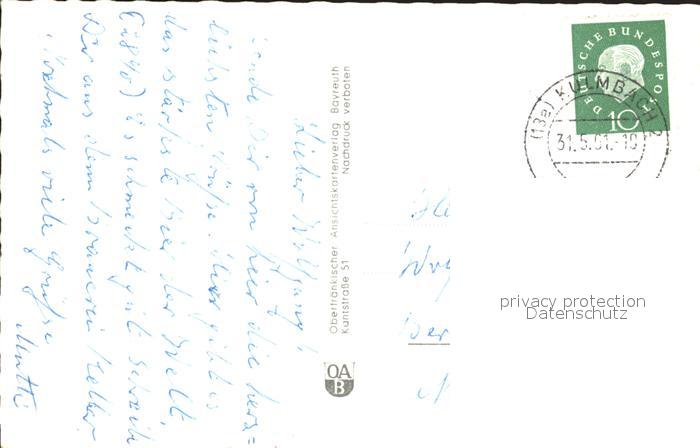 Lieber Wolfgang!
sende Dir von hier die herz=
lichsten Grüße. Hier gibt es
das stärkste Bier der Welt.
(28%) Es schmeckt gut. Schreibe
Dir aus dem Brauerei Keller.
Nochmals viele Grüße
Mutti
Oberfränkischer Ansichtskartenverlag Bayreuth
Kantstraße 51 Nachdruck verboten
OA
B
DEUTSCHE BUNDESPOST
10
(13a) KULMBACH 2
31.5.61.-10
Ber
privacy protection
Datenschutz